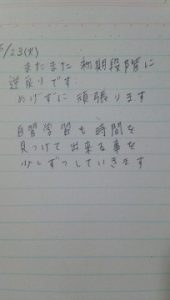 5/23(火)
またまた初期段階に
逆戻りです.
めげずに頑張ります
自習学習も時間を
見つけて出来る事を
少しずつしていきます